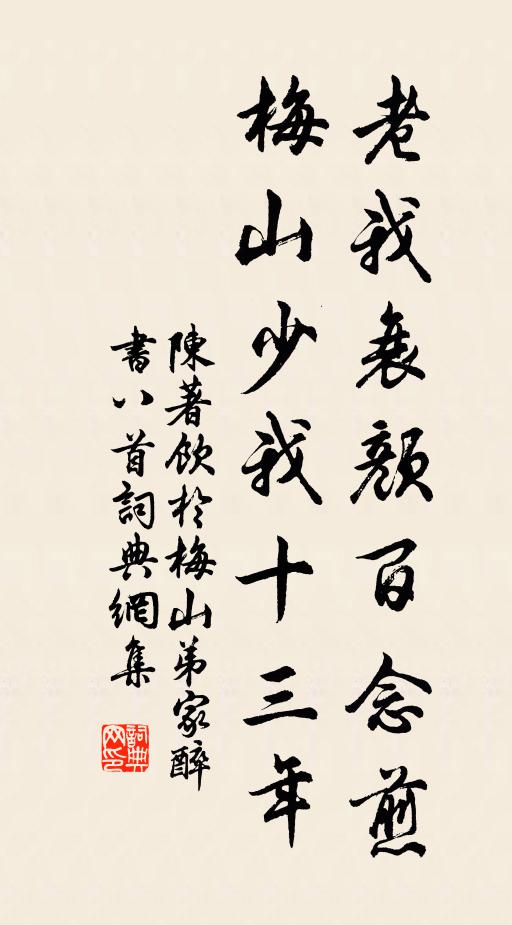 老我衰顏百念煎
梅山少我十三年
陳著飲於梅山弟家醉
書八首詞典網集
詞典
网印